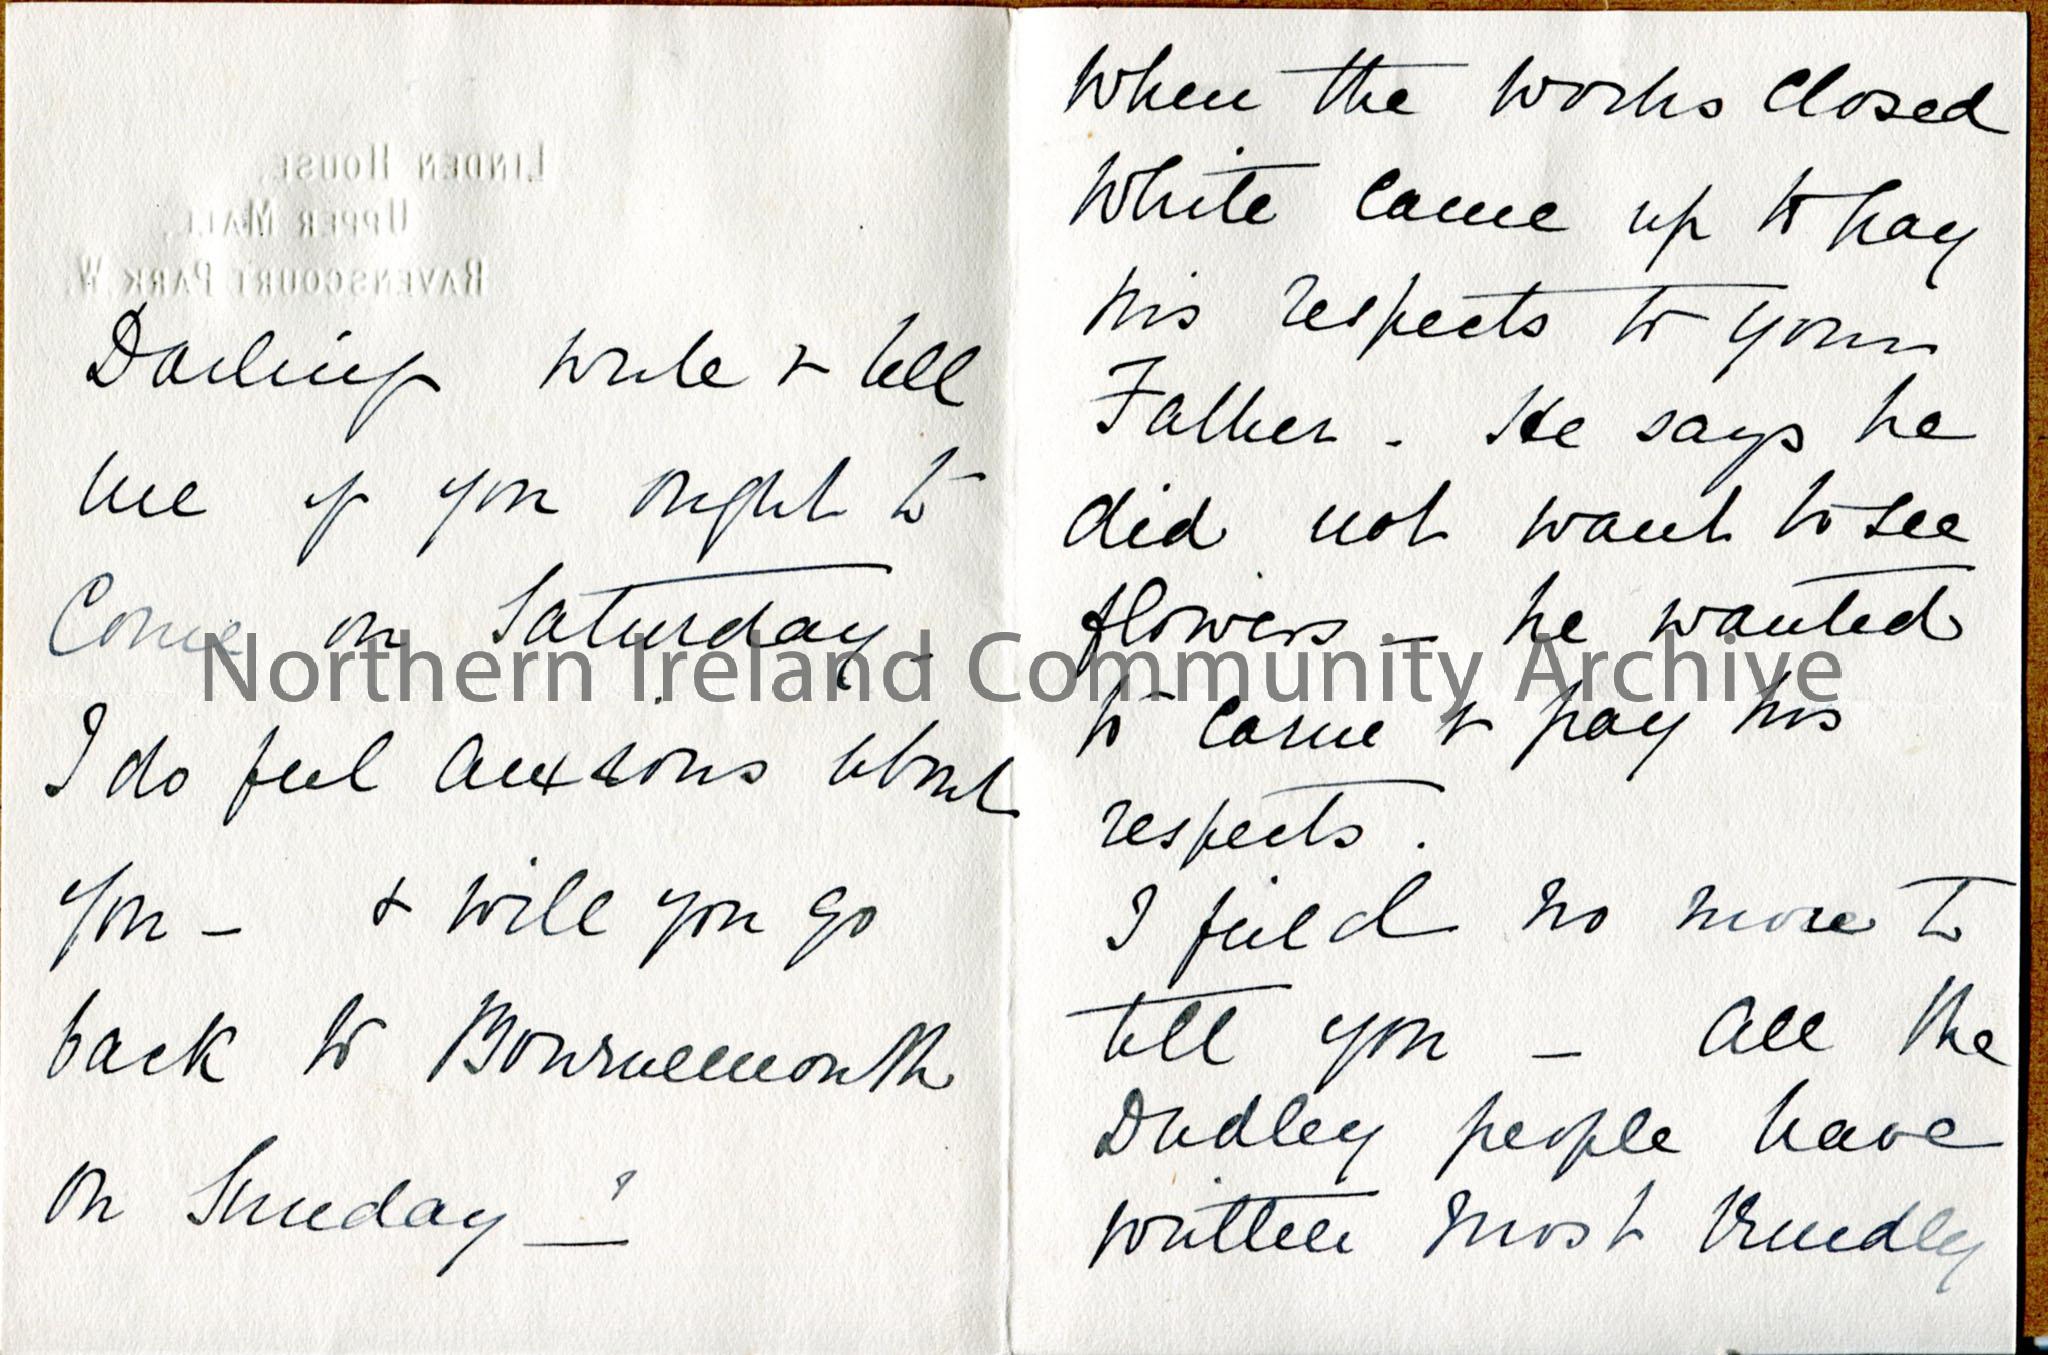 LINDEN HOUSE,
UPPER MALL,
RAVENSCOURT PARK, W.
Darling write & tell
me if you ought to
Come on Saturday -
I do feel anxious about
you - & will you go
back to Bournemouth
on Sunday - ?
When the works closed
White came up to pay
his respects to your
Father - He says he
did not want to see
flowers - he wanted
to come & pay his
respects.
I feel no more to
tell you - All the
Dudley people have
written most kindly
Northern Ireland Community Archive